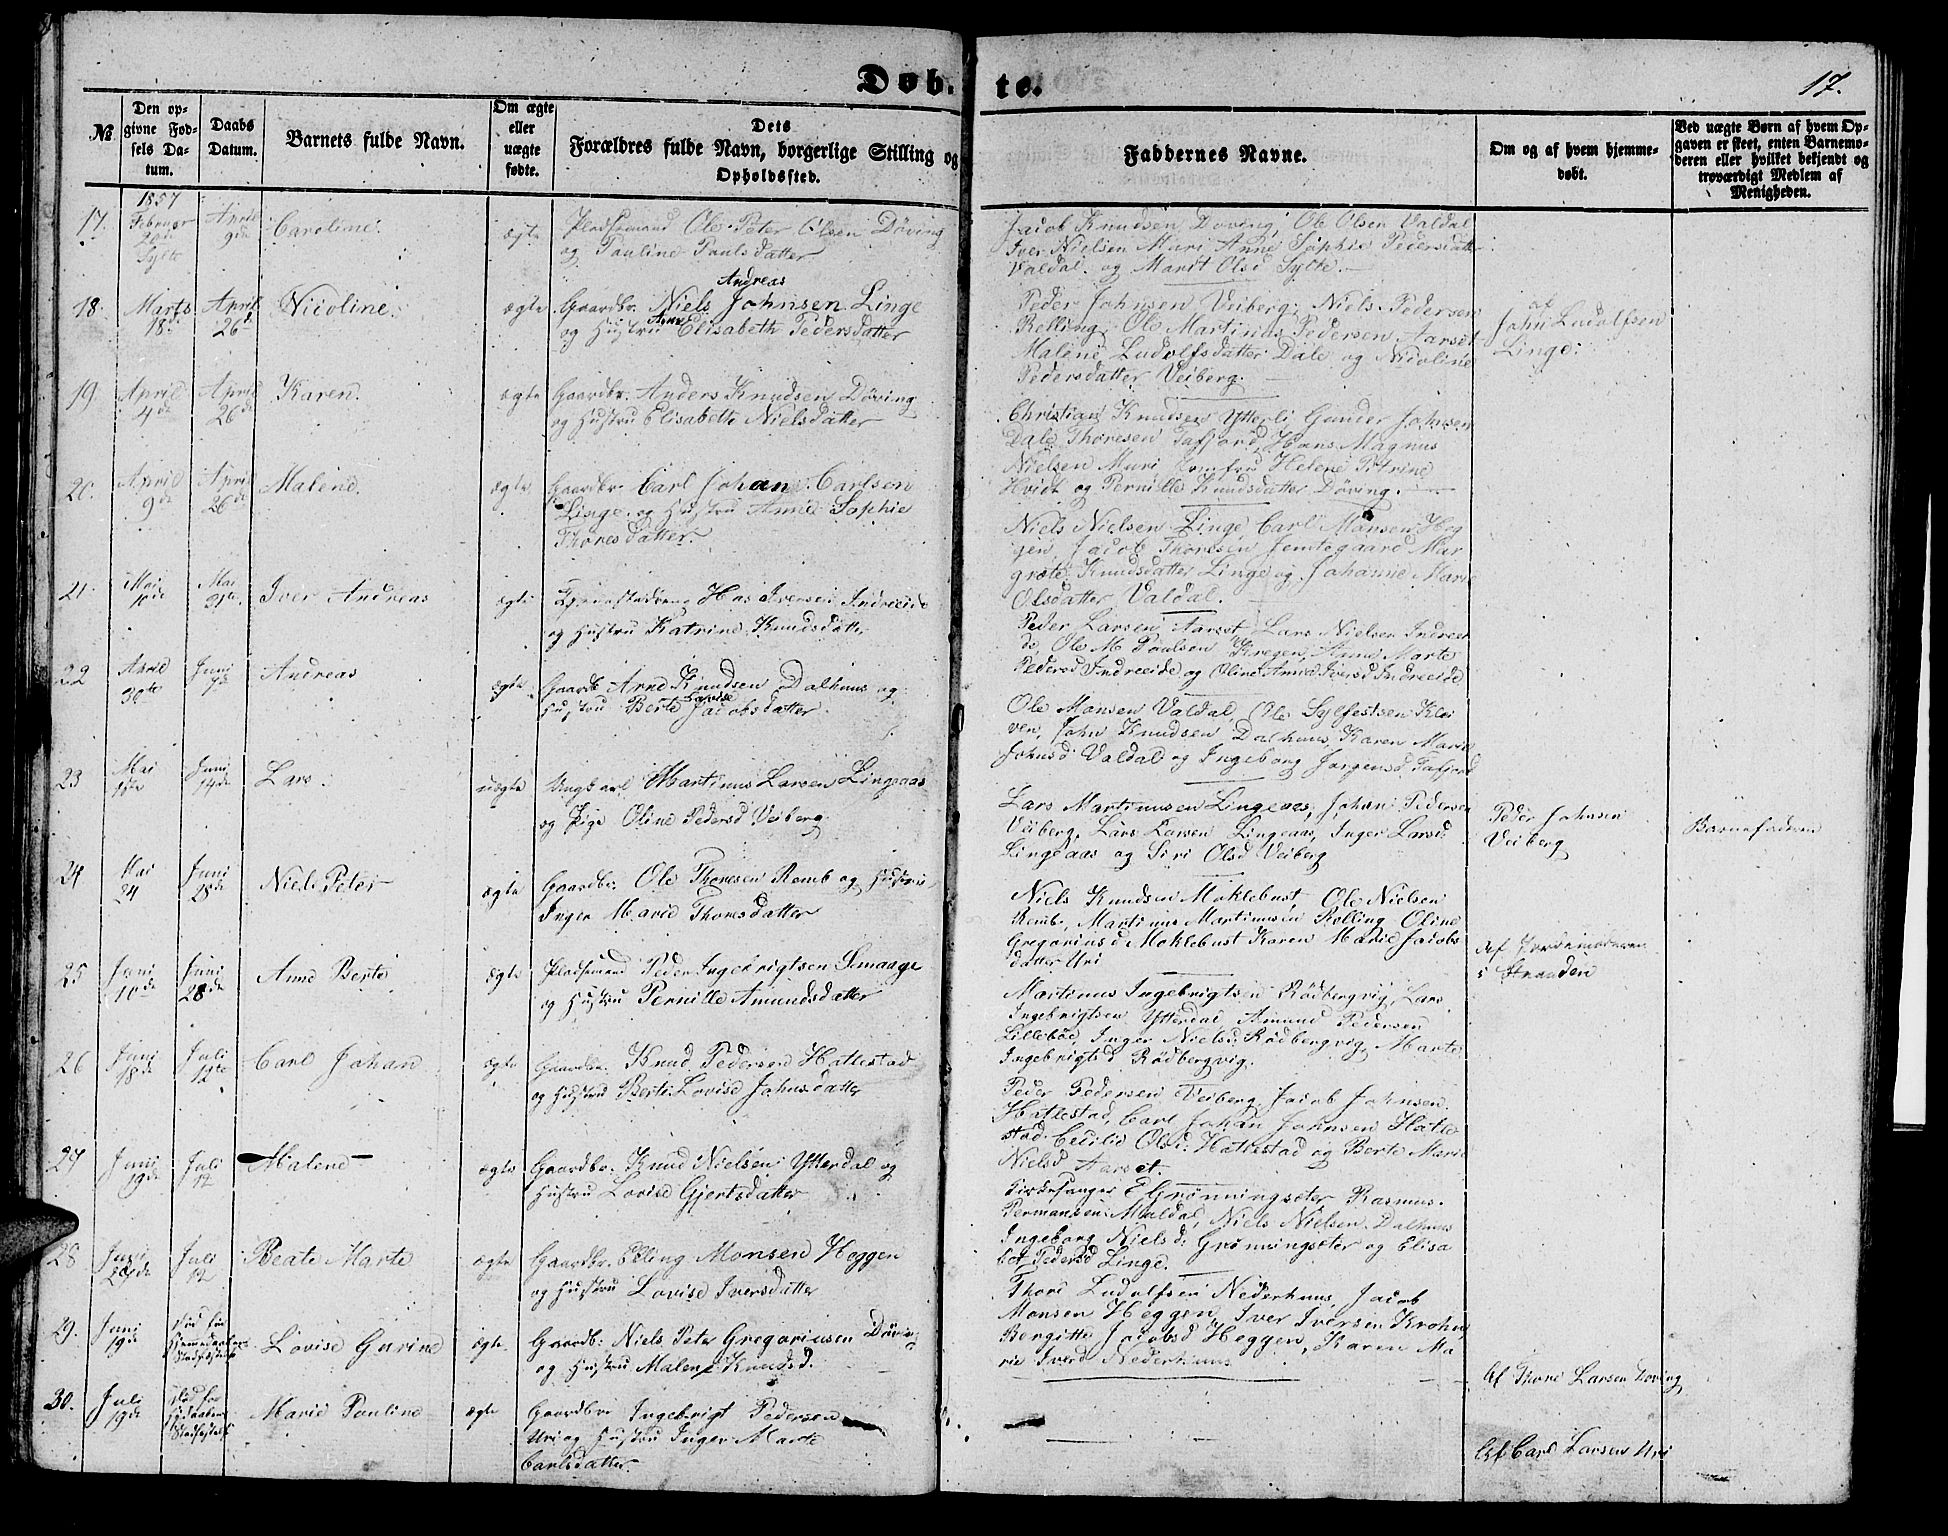 Døb.
te.
17.
№
Den op-
givne Fød-
sels Da-
tum.
Daabs
Datum.
Barnets fulde Navn.
Om ægte
eller
uægte
fødte.
Dets
Forældres fulde Navn, borgerlige Stilling og
Opholdssted.
Faddernes Navne.
Om og af hvem hjemme-
døbt.
Ved uægte Børn af hvem Op-
gaven er skeet, enten Barnemo-
deren eller hvilket bekjendt og
troværdigt Medlem af
Menigheden.
1857
17. Februar April Caroline. ægte Pladsemand Ole Peter Olsen Döving
Sylte 9de og Pauline Pauls datter
Jacob Knudsen Doving, Ole Olsen Valdal
Iver Nielsen Muri Anne Sophie Pedersdatt
Valdal. og Marit Olsd Sylte.
18. Marts 18de April 26de Nicoline. ægte Gaardbr. Niels Andreas Johnsen Linge
og Hustru Anne Elisabeth Pedersdatter
Peder Johnsen Veiberg, Niels Pedersen
Relling, Ole Martinus Pedersen Aarset
Malene Ludolfsdatter Dale og Nicoline
Pedersdatter Veiberg.
af
John Ludolfsen
Linge.
19. April 4de April 26de Karen. ægte Gaardbr. Anders Knudsen Döving
og Hustru Elisabeth Nielsdatter
Christian Knudsen Ytterli Gunder Johnsen
Dale Thoresen Tafjord, Hans Magnus
Nielsen Muri Jomfru Helene Petrine
Hvidt og Pernille Knudsdatter Döving.
20. April 9de April 26de Malene. ægte Gaardbr. Carl Johan Carlsen
Linge og Hustru Anne Sophie
Thoresdatter.
Niels Nielsen Linge, Carl Monsen Heg
gen, Jacob Thoresen Jemtegaard Mar
grete Knudsdatter Linge og Johanne Marie
Olsdatter Valdal.
21. Mai 10de Mai 31te Iver Andreas ægte Has Iversen Indreeide
og Hustru Katrine Knudsdatter
Peder Larsen Aarset Lars Nielsen Indreei
de, Ole M Paulsen Anne Marte
Pedersd Indreeide og Oline Anne Iversd Indreeide
22 April 30te Juni 7de Andreas ægte Gaardb Arne Knudsen Dalhuus og
Hustru Berte Lovise Jacobsdatter.
Ole Monsen Valdal, Ole Sylfestsen Klei
ven, John Knudsen Dalhuus, Karen Marie
Johnsd Valdal og Ingeborg Jørgensd Tafjord
23 Mai 1ste Juni 14de Lars. uægte Ungkarl Martinus Larsen Lingeaas
og Pige Oline Pedersd Veiberg.
Lars Martinusen Lingeaas, Johan Pedersen
Veiberg, Lars Larsen Lingeaas, Inger Larsd
Lingeaas og Siri Olsd Veiberg
Peder Johnsen
Veiberg
Barnefaderen
24 Mai 24 Juni 28de Niels Peter ægte Gaardbr. Ole Thoresen Remb og Hustru
Inger Marie Thorsdatter
Niels Knudsen Moklebust, Ole Nielsen
Remb, Martinus Martinusen Relling Oline
Gregoriusd Moklebust Karen Marie Jacobs
datter Uri
25 Juni 10de Juni 28de Anne Berte ægte Pladsmand Peder Ingebrigtsen Smaage
og Hustru Pernille Amundsdatter
Martinus Ingebrigtsen Rödbergvig, Lars
Ingebrigtsen Ytterdal Amund Pedersen
Lilleböe, Inger Nielsd. Rödbergvig, Marte
Ingebrigtsd Rödbergvig.
Af Jordemoderen
i Stranden
26 Juni 18de Juli 12te Carl Johan ægte Gaardbr. Knud Pedersen Hattestad
og Hustru Berte Lovise Johnsdatter
Peder Pedersen Veiberg, Jacob Johnsen
Hattestad, Carl Johan Johnsen Hatte
stad Cecilie Olsd: Hattestad og Berte Marie
Nielsd Aarset.
27 Juni 19de Juli 12 Malene ægte Gaardbr. Knud Nielsen Ytterdal og
Hustru Lovise Gjertsdatter
Kirkesanger E Grønningsæter Rasmus
Permansen Muldal, Niels Nielsen Dalhuus
Ingeborg Nielsd: Grønningsæter og Elisa
bet Pedersd Linge.
28 Juni Juli 12 Beate Marte ægte Gaardbr. Elling Monsen Heggen
og Hustru Lovise Iversdatter
Thore Ludolfsen Nederhuus, Jacob
Monsen Heggen, Iver Iversen Krohn,
Bergitte Jacobsd Heggen, Karen Ma
rie Iversd Nederhuus
29. Juni 19de Død før Hjemmedaabens Stadfæstelse Lovise Gurine ægte Gaardb: Niels Peter Gregoriusen Döving
og Hustru Malene Knudsd.
Af Thore Larsen Doving
30. Juli 19de Død før Daabens Stadfæstelse Marie Pauline ægte Gaardbr Ingebrigt Pedersen
Uri og Hustru Inger Marte
Carlsdatter.
Af Carl Larsen Uri